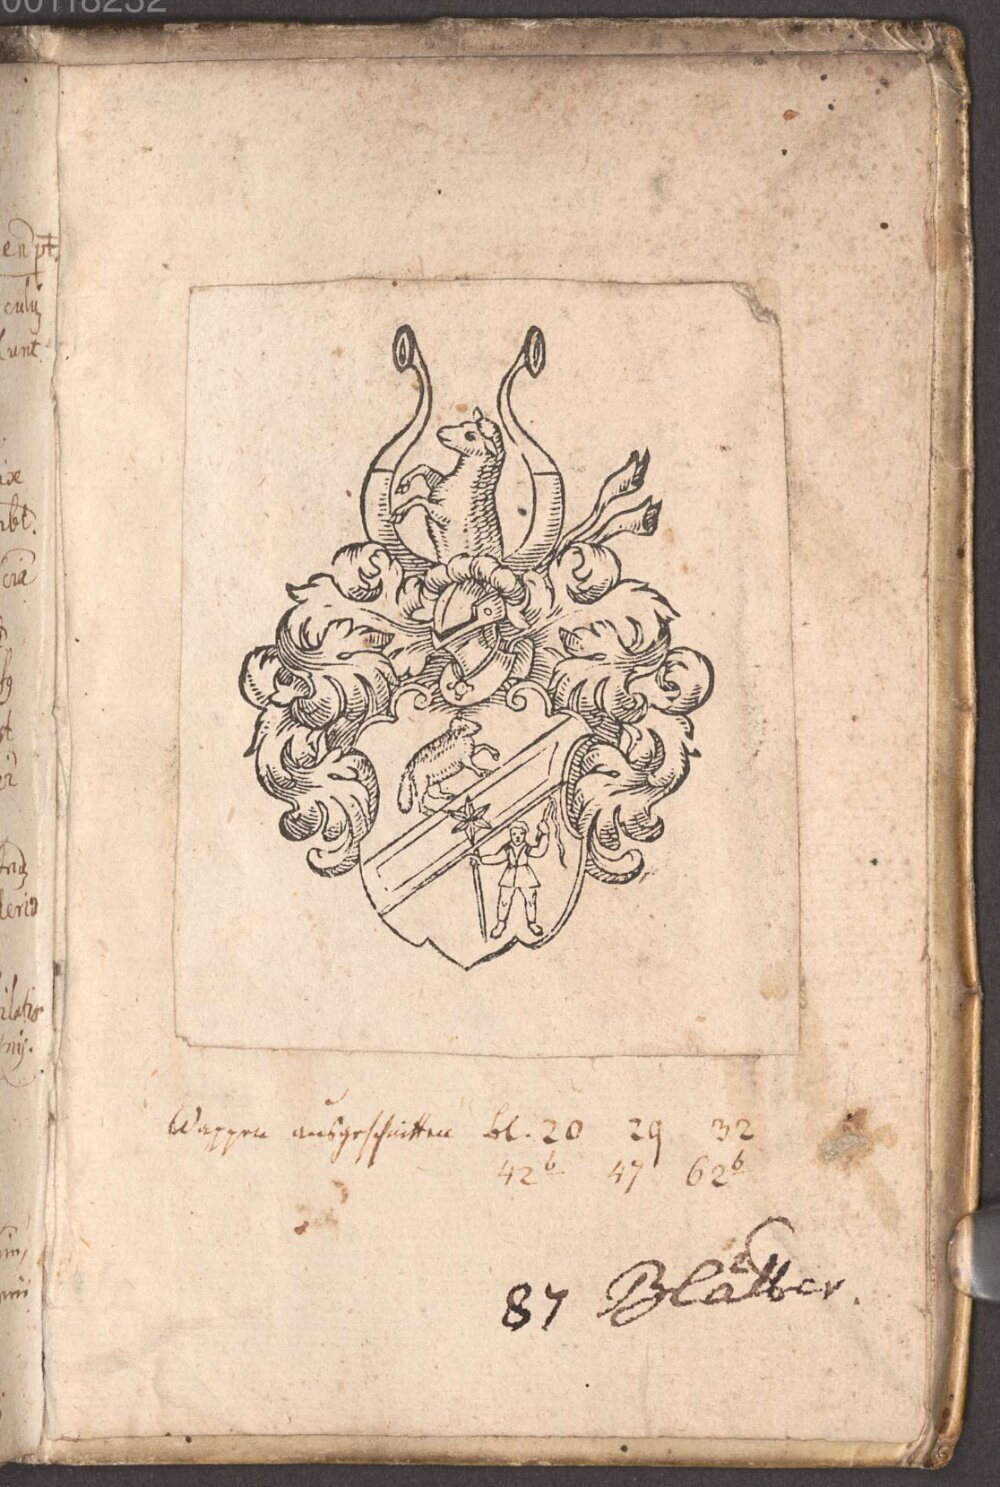 00118232
en pt.
culy
sunt.
Wappen ausgeschnitten bl. 20 29 32
42b 47 62b
87 Blätter.